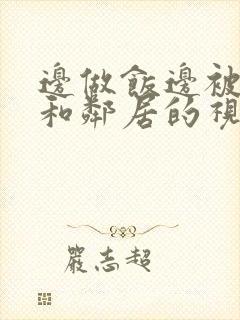 邊做飯邊被
和鄰居的視
嚴志超